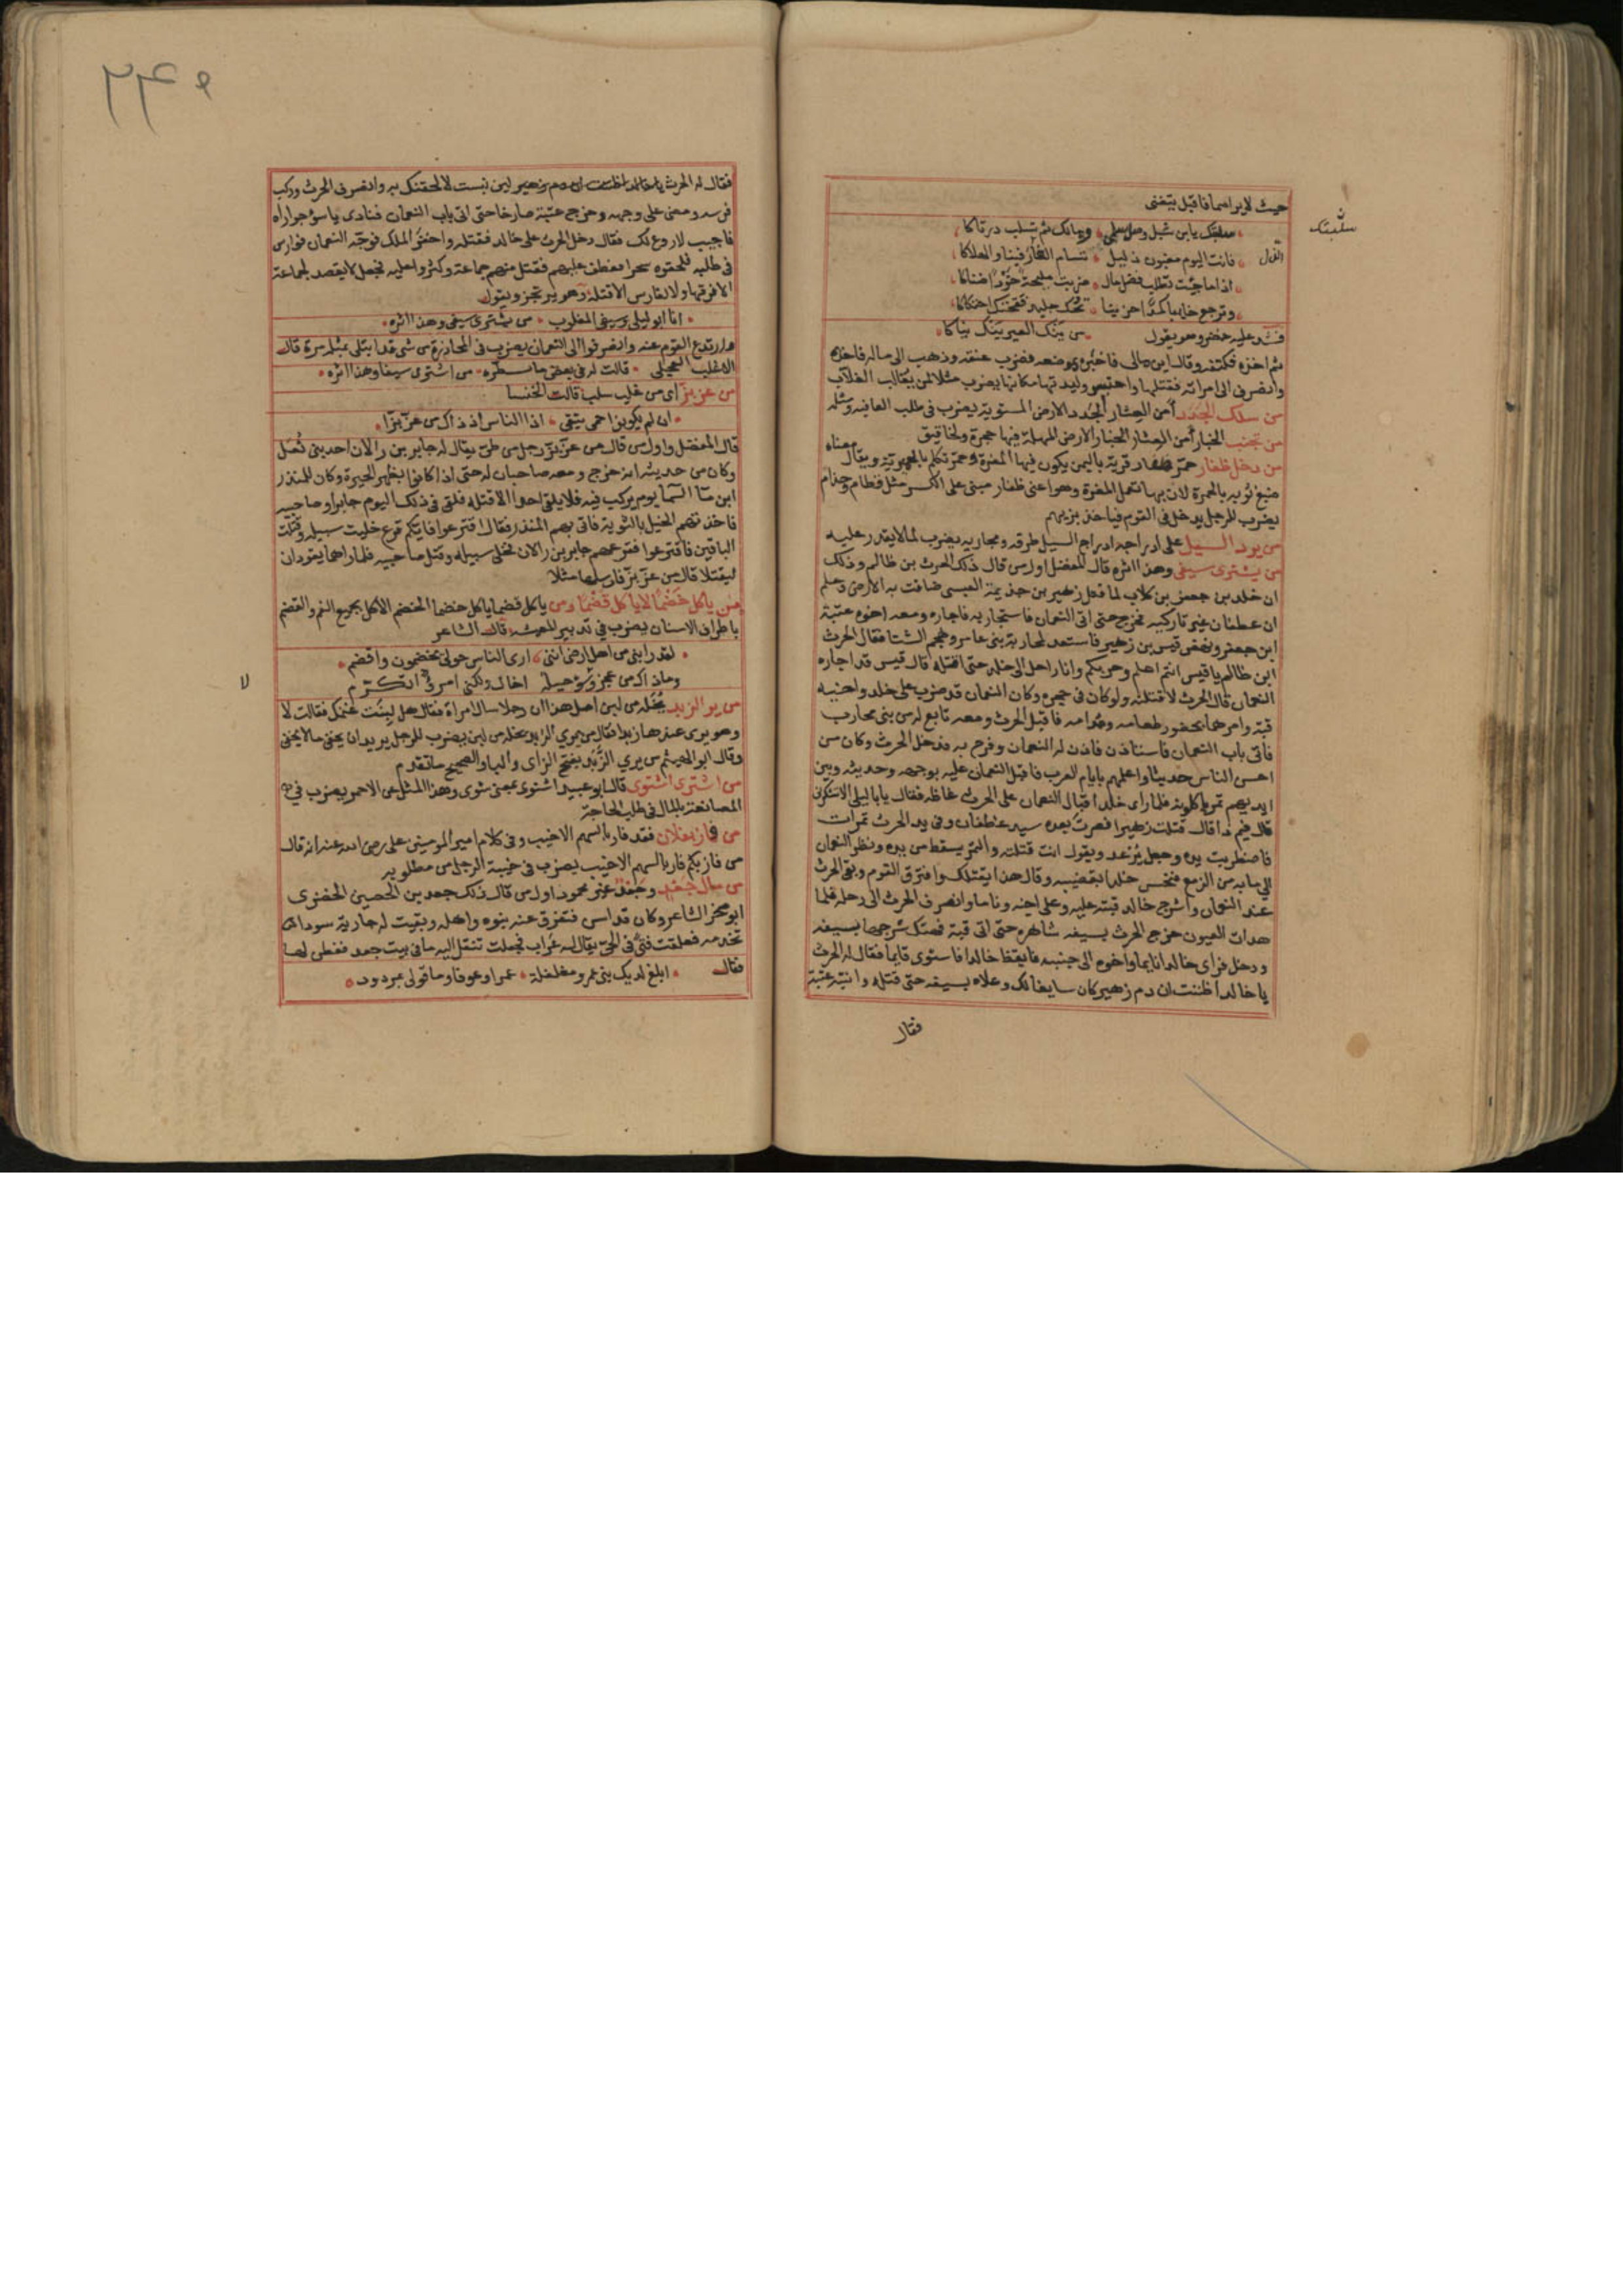 حيث لا يراهما فاقبل يتغنى
سلبتك يابن شبل وصل سلمى ومالك ثم تسلب درتاكا
فانت اليوم مغبون ذليل تسام العار فينا والهلاكا
اذا ما جيت تطلب فضل مال ضربت مليحة خودا ضناكا
وترجع خايبا كمدا حزينا تحك جليد فقحتك احتكاكا
فشد عليه خضر وهو يقول من ينك العير ينك نياكا
ثم اخذه فكتفه وقال اين مالى فاخبره بموضعه فضرب عنقه وذهب الى ماله فاخذه
وانصرف الى امراته فقتلها واحتبس وليدتها مكانها يضرب مثلا لمن يغالب الغلاب
من سلك الجدد أمن العثار الجدد الارض المستوية يضرب فى طلب العافيه ومثله
من تجنب الخبار أمن العثار الخبار الارض المهملة فيها حجرة ولخاقيق
من دخل ظفار حمر ظفار قرية باليمن يكون فيها المغرة وحمر تكلم بالحميرية ويقال معناه
صبغ ثوبه بالحمرة لان بها تعمل المغرة وهو اعنى ظفار مبنى على الكسر مثل قطام وحذام
يضرب للرجل يدخل فى القوم فياخذ بزيهم
من يرد السيل على ادراجه ادراج السيل طرقه ومجاريه يضرب لما لا يقدر عليه
من يشترى سيفى وهذا اثره قال المفضل اول من قال ذلك الحرث بن ظالم وذلك
ان خلد بن جعفر بن كلاب لما قتل زهير بن جذيمة العبسى ضاقت به الارض وعلم
ان غطفان غير تاركيه فخرج حتى اتى النعمان فاستجار به فاجاره ومعه اخوه عتبة
ابن جعفر ونهض قيس بن زهير فاستعد لمحاربة بنى عامر وهجم الشتا فقال الحرث
ابن ظالم يا قيس انتم اعلم وحربكم وانا راحل الى خلد حتى اقتله قال قيس قد اجاره
النعمان قال الحرث لاقتلنه ولو كان فى حجره وكان النعمان قد ضرب على خلد واخيه
قبة وامرهما بحضور طعامه ومدامه فاقبل الحرث ومعه تابع له من بنى محارب
فاتى باب النعمان فاستاذن فاذن له النعمان وفرح به فدخل الحرث وكان من
احسن الناس حديثا واعلمهم بايام العرب فاقبل النعمان عليه بوجهه وحديثه وبين
ايديهم تمر ياكلونه فلما راى خلد اقبال النعمان على الحرث غاظه فقال يابا ليلى الا تشكرنى
قال فيم ذا قال قتلت زهيرا فصرت بعده سيد غطفان وفى يد الحرث تمرات
فاضطربت يده وجعل يرعد ويقول انت قتلته والتمر يسقط من يده ونظر النعمان
الى ما به من الزمع فنخس خلدا بقضيبه وقال هذا يقتلك وافترق القوم وبقى الحرث
عند النعمان واشرج خالد قبته عليه وعلى اخيه وناما وانصرف الحرث الى رحله فلما
هدات العيون خرج الحرث بسيفه شاهره حتى اتى قبة فهتك شرجها بسيفه
ودخل فراى خالدا نايما واخوه الى جنبه فايقظ خالدا فاستوى قايما فقال له الحرث
يا خالد اظننت ان دم زهير كان سايغا لك وعلاه بسيفه حتى قتله وانتبه عتبة
فقال
سلبتك
الذل
٢٤٩
فقال له الحرث لين نبست لالحقنك به وانصرف الحرث وركب
فرسه ومضى على وجهه وخرج عتبة صارخا حتى اتى باب النعمان فنادى يا سو جواراه
فاجيب لا روع لك فقال دخل الحرث على خالد فقتله واخفر الملك فوجه النعمان فوارس
فى طلبه فلحقوه سحرا فعطف عليهم فقتل منهم جماعة وكثروا عليه فجعل لا يقصد لجماعة
الا فرقها ولا لفارس الا قتله وهو يرتجز ويقول
انا ابو ليلى وسيفى المغلوب من يشترى سيفى وهذا اثره
وارتدع القوم عنه وانصرفوا الى النعمان يضرب فى المحاذرة من شى قد ابتلى بمثله مرة قال
الاغلب العجلى قالت له فى بعض ما تسطره من اشترى سيفا وهذا اثره
من عز بز اى من غلب سلب قالت الخنسا
ان لم يكونوا حمى يتقى اذ الناس اذ ذاك من عز بزا
قال المفضل واول من قال من عز بز رجل من طى يقال له جابر بن رالان احد بنى ثعل
وكان من حديثه انه خرج ومعه صاحبان له حتى اذا كانوا بظهر الحيرة وكان للمنذر
ابن ما السما يوم يركب فيه فلا يلقى احدا الا قتله فلقى فى ذلك اليوم جابرا وصاحبيه
فاخذتهم الخيل بالثوية فاتى بهم المنذر فقال اقترعوا فايكم قرع خليت سبيله وقتلت
الباقين فاقترعوا فقرعهم جابر بن رالان فخلى سبيله وقتل صاحبيه فلما راهما يقودان
ليقتلا قال من عز بز فارسلها مثلا
من ياكل خضما لا ياكل قضما ومن ياكل قضما ياكل خضما الخضم الاكل بجميع الفم والقضم
باطراف الاسنان يضرب فى تدبير المعيشة قال الشاعر
لقد رابنى من اهل ارضى اننى ارى الناس حولى يخضمون واقضم
وما ذاك من عجز وسو حيلة اخال ولكنى امرؤ اتكرم
من ير الزبد يخله من لبن اصل هذا ان رجلا سال امراة فقال هل لبنت غنمك فقالت لا
وهو يرى عندها زبدا فقال من يرى الزبد يخله من لبن يضرب للرجل يريد ان يخفى ما لا يخفى
وقال ابو الهيثم من يرى الزبد بفتح الزاى والبا والصحيح ما تقدم
من اشترى اشتوى قال ابو عبيد اشتوى بمعنى شوى وهذا المثل عن الاحمر يضرب فى
المصانعة بالمال فى طلب الحاجة
من فاز بفلان فقد فاز بالسهم الاخيب وفى كلام امير المومنين على رضى الله عنه انه قال
من فاز بكم فاز بالسهم الاخيب يضرب فى خيبة الرجل من مطلوبه
من مال جعد وجعد غير محمود اول من قال ذلك جعد بن الحصين الحضرى
ابو صخر الشاعر وكان قد اسن فتفرق عنه بنوه واهله وبقيت له جارية سودا
تخدمه فعلقت فتى فى الحى يقال له عراب فجعلت تنقل اليه ما فى بيت جعد ففطن لها
فقال ابلغ لديك بنى عمرو مغلغلة عمرا وعوفا وما قولى بمردود
لا